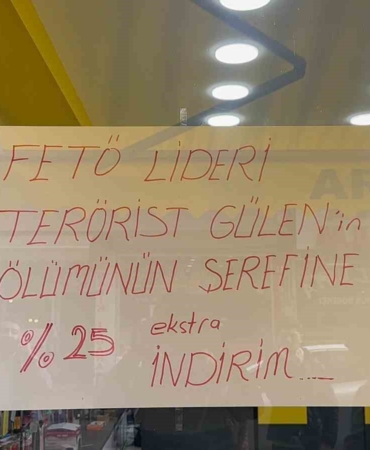 FETÖ LİDERİ
TERÖRİST GÜLEN'in
ÖLÜMÜNÜN ŞEREFİNE
% 25 ekstra
İNDİRİM...